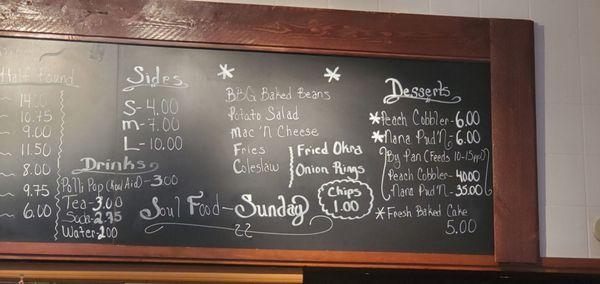 Half Pound
14.00
10.75
9.00
11.50
8.00
9.75
6.00
Sides
S - 4.00
M - 7.00
L - 10.00
Drinks
Polli Pop (Kool Aid) - 3.00
Tea - 3.00
Soda - 2.75
Water - 1.00
* *
BBG Baked Beans
Potato Salad
Mac 'N Cheese
Fries
Coleslaw
Fried Okra
Onion Rings
Chips
1.00
Soul Food - Sunday
Desserts
*Peach Cobbler - 6.00
*Nana Pud'N - 6.00
By Pan (Feeds 10-15ppl)
Peach Cobbler - 40.00
Nana Pud'N - 35.00
*Fresh Baked Cake
5.00